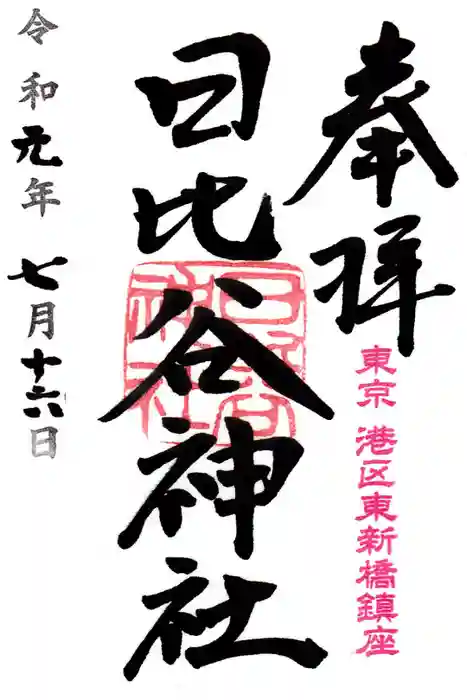 奉拝
東京 港区東新橋鎮座
日比谷神社
令和元年 七月十六日